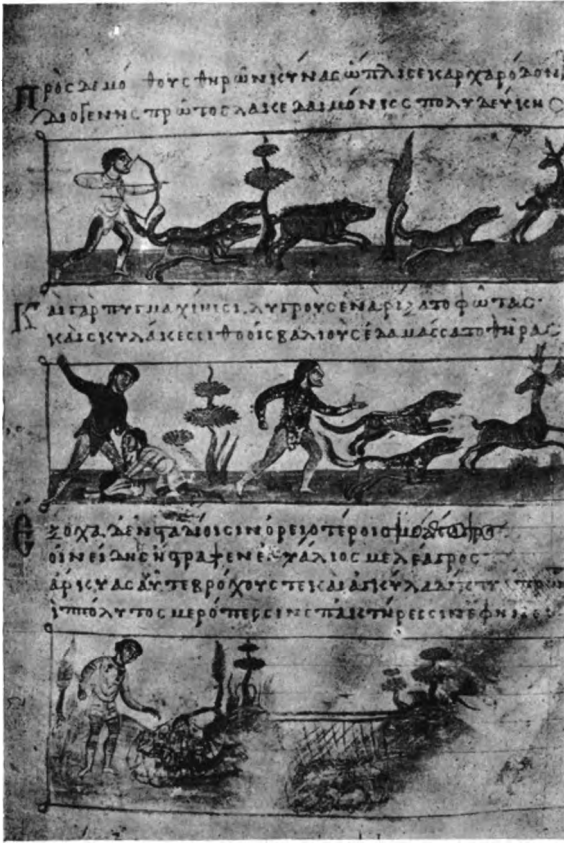 Πρὸς δὲ μόθους θηρῶν κύνας ὥπλισε καρχαρόδον
διογενης πρῶτος λακεδαιμόνιος πολυδεύκης
Και γὰρ πυγμαχίηισι λυγροὺς ἐναρίξατο φῶτας·
καὶ σκυλάκεσσι θοοῖς βαλιοὺς ἐδαμάσσατο θῆρας
Ἔξοχα δ' ἐν ὀρειοτέροισι
οἰνείδης ἤστραψεν ἐνυάλιος μελέαγρος·
ἄρκυας αὖτε βρόχους τε καὶ ἀγκύλα δίκτυα πρῶτ
ἱππόλυτος μερόπεσσιν ἐπακτήρεσσιν ἔφηνε